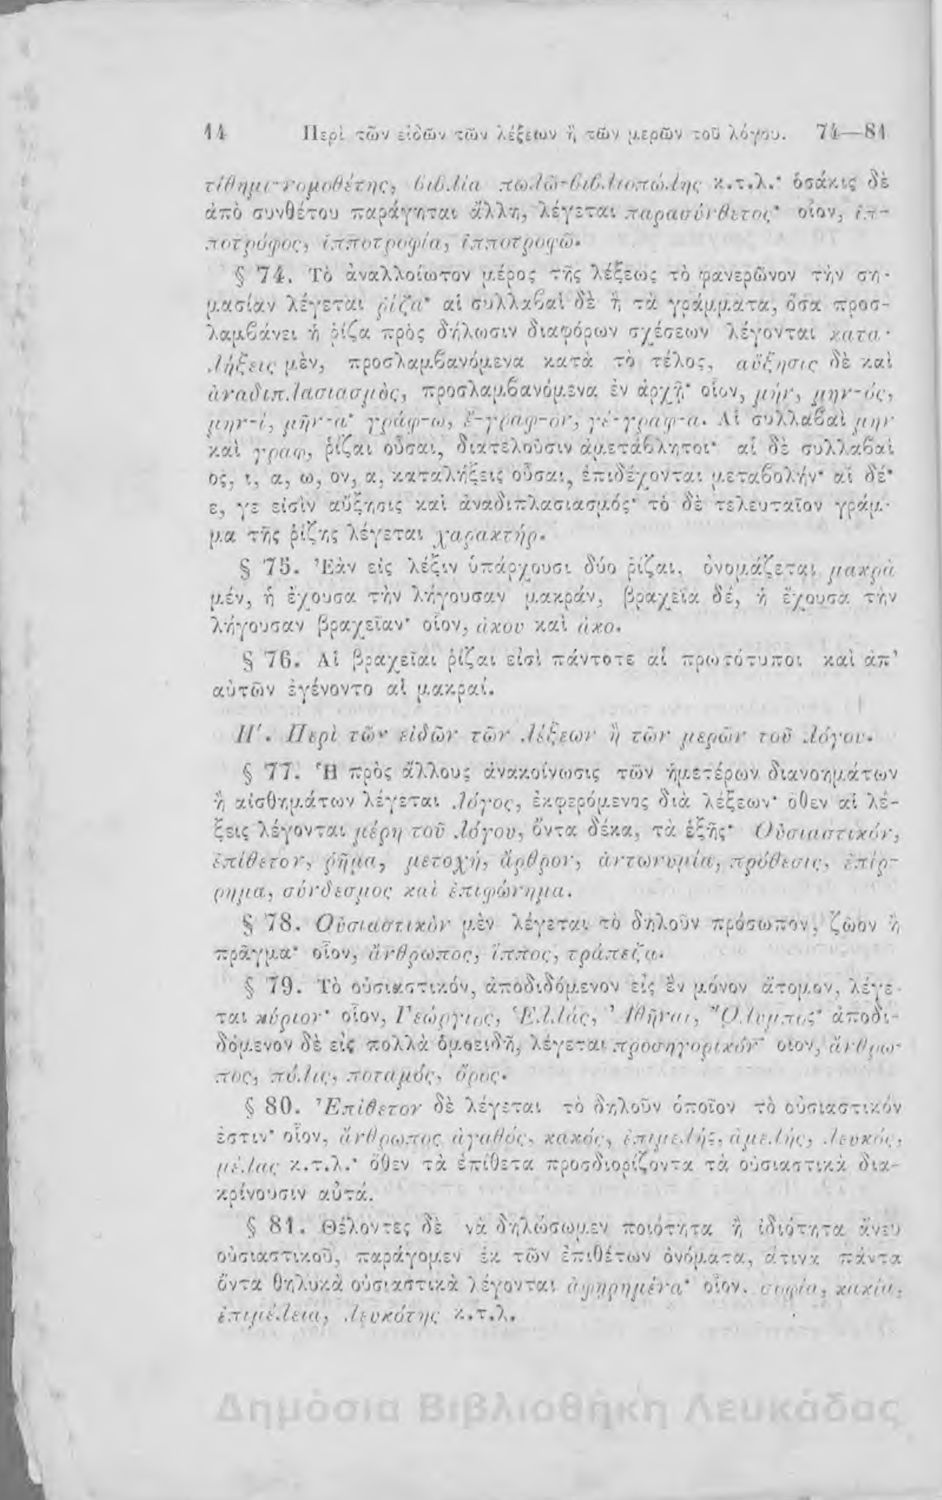 14 Περὶ τῶν εἰδῶν τῶν λέξεων ἢ τῶν μερῶν τοῦ λόγου. 74—81
τίθημι-νομοθέτης, βιβλία πωλῶ-βιβλιοπώλης κ.τ.λ.· ὁσάκις δὲ
ἀπὸ συνθέτου παράγηται ἄλλη, λέγεται παρασύνθετος· οἷον, ἱπ-
ποτρόφος, ἱπποτροφία, ἱπποτροφῶ.
§ 74. Τὸ ἀναλλοίωτον μέρος τῆς λέξεως τὸ φανερῶνον τὴν ση-
μασίαν λέγεται ῥίζα· αἱ συλλαβαὶ δὲ ἢ τὰ γράμματα, ὅσα προσ-
λαμβάνει ἡ ῥίζα πρὸς δήλωσιν διαφόρων σχέσεων λέγονται κατα-
λήξεις μὲν, προσλαμβανόμενα κατὰ τὸ τέλος, αὔξησις δὲ καὶ
ἀναδιπλασιασμὸς, προσλαμβανόμενα ἐν ἀρχῇ· οἷον, μήν, μην-ός,
μην-ί, μῆν-α· γράφ-ω, ἔ-γραφ-ον, γέ-γραφ-α. Αἱ συλλαβαὶ μην
καὶ γραφ, ῥίζαι οὖσαι, διατελοῦσιν ἀμετάβλητοι· αἱ δὲ συλλαβαὶ
ος, ι, α, ω, ον, α, καταλήξεις οὖσαι, ἐπιδέχονται μεταβολήν· αἱ δέ·
ε, γε εἰσὶν αὔξησις καὶ ἀναδιπλασιασμός· τὸ δὲ τελευταῖον γράμ-
μα τῆς ῥίζης λέγεται χαρακτήρ.
§ 75. Ἐὰν εἰς λέξιν ὑπάρχουσι δύο ῥίζαι, ὀνομάζεται μακρὰ
μέν, ἡ ἔχουσα τὴν λήγουσαν μακράν, βραχεῖα δέ, ἡ ἔχουσα τὴν
λήγουσαν βραχεῖαν· οἷον, ἀκου καὶ ἀκο.
§ 76. Αἱ βραχεῖαι ῥίζαι εἰσὶ πάντοτε αἱ πρωτότυποι καὶ ἀπ'
αὐτῶν ἐγένοντο αἱ μακραί.
Η'. Περὶ τῶν εἰδῶν τῶν λέξεων ἢ τῶν μερῶν τοῦ λόγου.
§ 77. Ἡ πρὸς ἄλλους ἀνακοίνωσις τῶν ἡμετέρων διανοημάτων
ἢ αἰσθημάτων λέγεται λόγος, ἐκφερόμενος διὰ λέξεων· ὅθεν αἱ λέ-
ξεις λέγονται μέρη τοῦ λόγου, ὄντα δέκα, τὰ ἑξῆς· Οὐσιαστικόν,
ἐπίθετον, ῥῆμα, μετοχή, ἄρθρον, ἀντωνυμία, πρόθεσις, ἐπίρ-
ρημα, σύνδεσμος καὶ ἐπιφώνημα.
§ 78. Οὐσιαστικὸν μὲν λέγεται τὸ δηλοῦν πρόσωπον, ζῶον ἢ
πρᾶγμα· οἷον, ἄνθρωπος, ἵππος, τράπεζα.
§ 79. Τὸ οὐσιαστικόν, ἀποδιδόμενον εἰς ἓν μόνον ἄτομον, λέγε-
ται κύριον· οἷον, Γεώργιος, Ἑλλάς, Ἀθῆναι, Ὄλυμπος· ἀποδι-
δόμενον δὲ εἰς πολλὰ ὁμοειδῆ, λέγεται προσηγορικόν· οἷον, ἄνθρω-
πος, πόλις, ποταμός, ὄρος.
§ 80. Ἐπίθετον δὲ λέγεται τὸ δηλοῦν ὁποῖον τὸ οὐσιαστικόν
ἐστιν· οἷον, ἄνθρωπος ἀγαθός, κακός, ἐπιμελής, ἀμελής, λευκός,
μέλας κ.τ.λ.· ὅθεν τὰ ἐπίθετα προσδιορίζοντα τὰ οὐσιαστικὰ δια-
κρίνουσιν αὐτά.
§ 81. Θέλοντες δὲ νὰ δηλώσωμεν ποιότητα ἢ ἰδιότητα ἄνευ
οὐσιαστικοῦ, παράγομεν ἐκ τῶν ἐπιθέτων ὀνόματα, ἅτινα πάντα
ὄντα θηλυκὰ οὐσιαστικὰ λέγονται ἀφῃρημένα· οἷον, σοφία, κακία,
ἐπιμέλεια, λευκότης κ.τ.λ.
Δημόσια Βιβλιοθήκη Λευκάδας